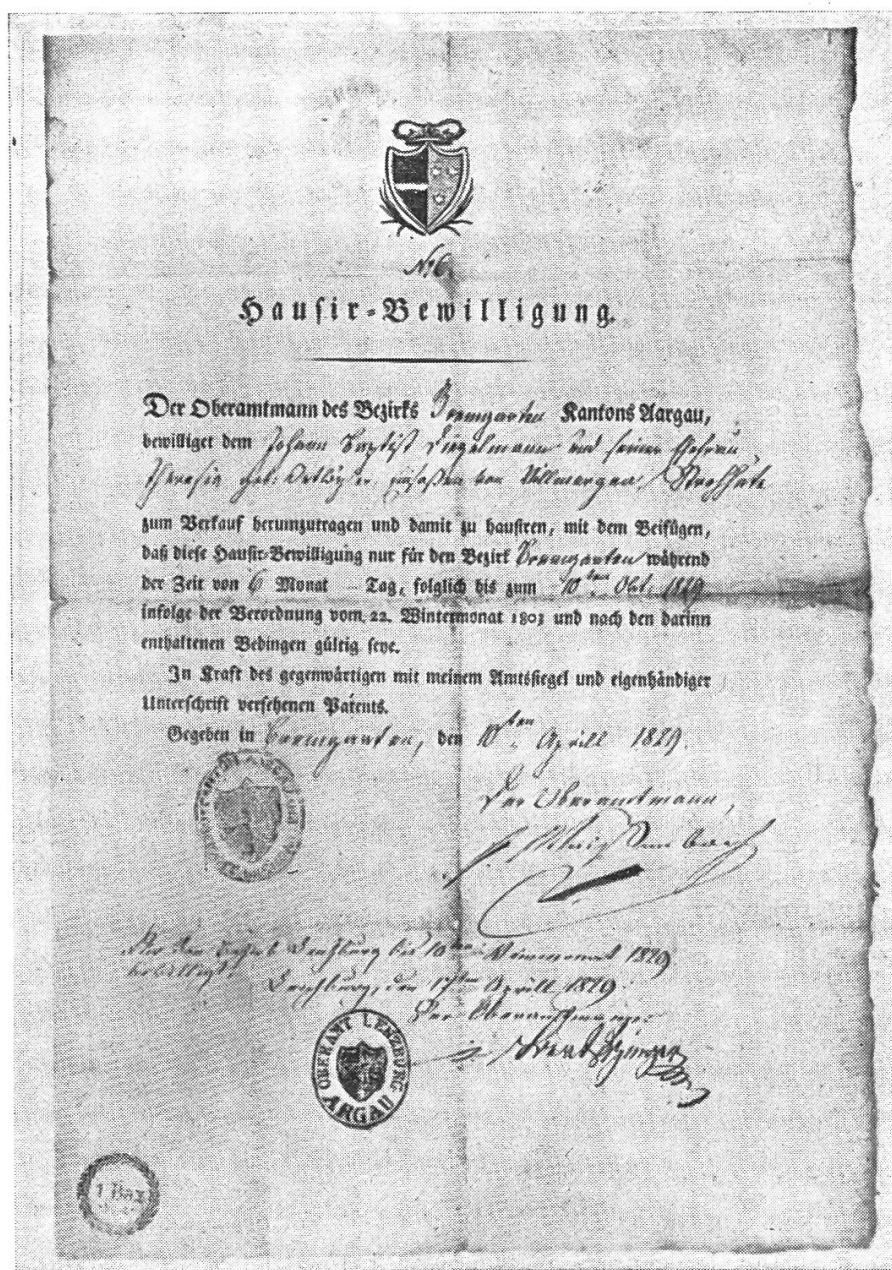 No. 6.
Hausir-Bewilligung.
Der Oberamtmann des Bezirks Bremgarten Kantons Aargau,
bewilliget dem Johann Baptist und seiner Ehefrau
Theresia geb. von Villmergen, Strohhüte
zum Verkauf herumzutragen und damit zu hausiren, mit dem Beifügen,
daß diese Hausir-Bewilligung nur für den Bezirk Bremgarten während
der Zeit von 6 Monat – Tag, folglich bis zum 10ten Obt. 1829
infolge der Verordnung vom 22. Wintermonat 1803 und nach den darinn
enthaltenen Bedingen gültig seye.
In Kraft des gegenwärtigen mit meinem Amtssiegel und eigenhändiger
Unterschrift versehenen Patents.
Gegeben in Bremgarten, den 10ten Aprill 1829.
Der Oberamtmann,
Für den Bezirk Lenzburg bis 10ten Weinmonat 1829
bewilligt.
Lenzburg, den 17ten Aprill 1829.
Der Oberamtmann
OBERAMT LENZBURG
ARGAU
1 Baz